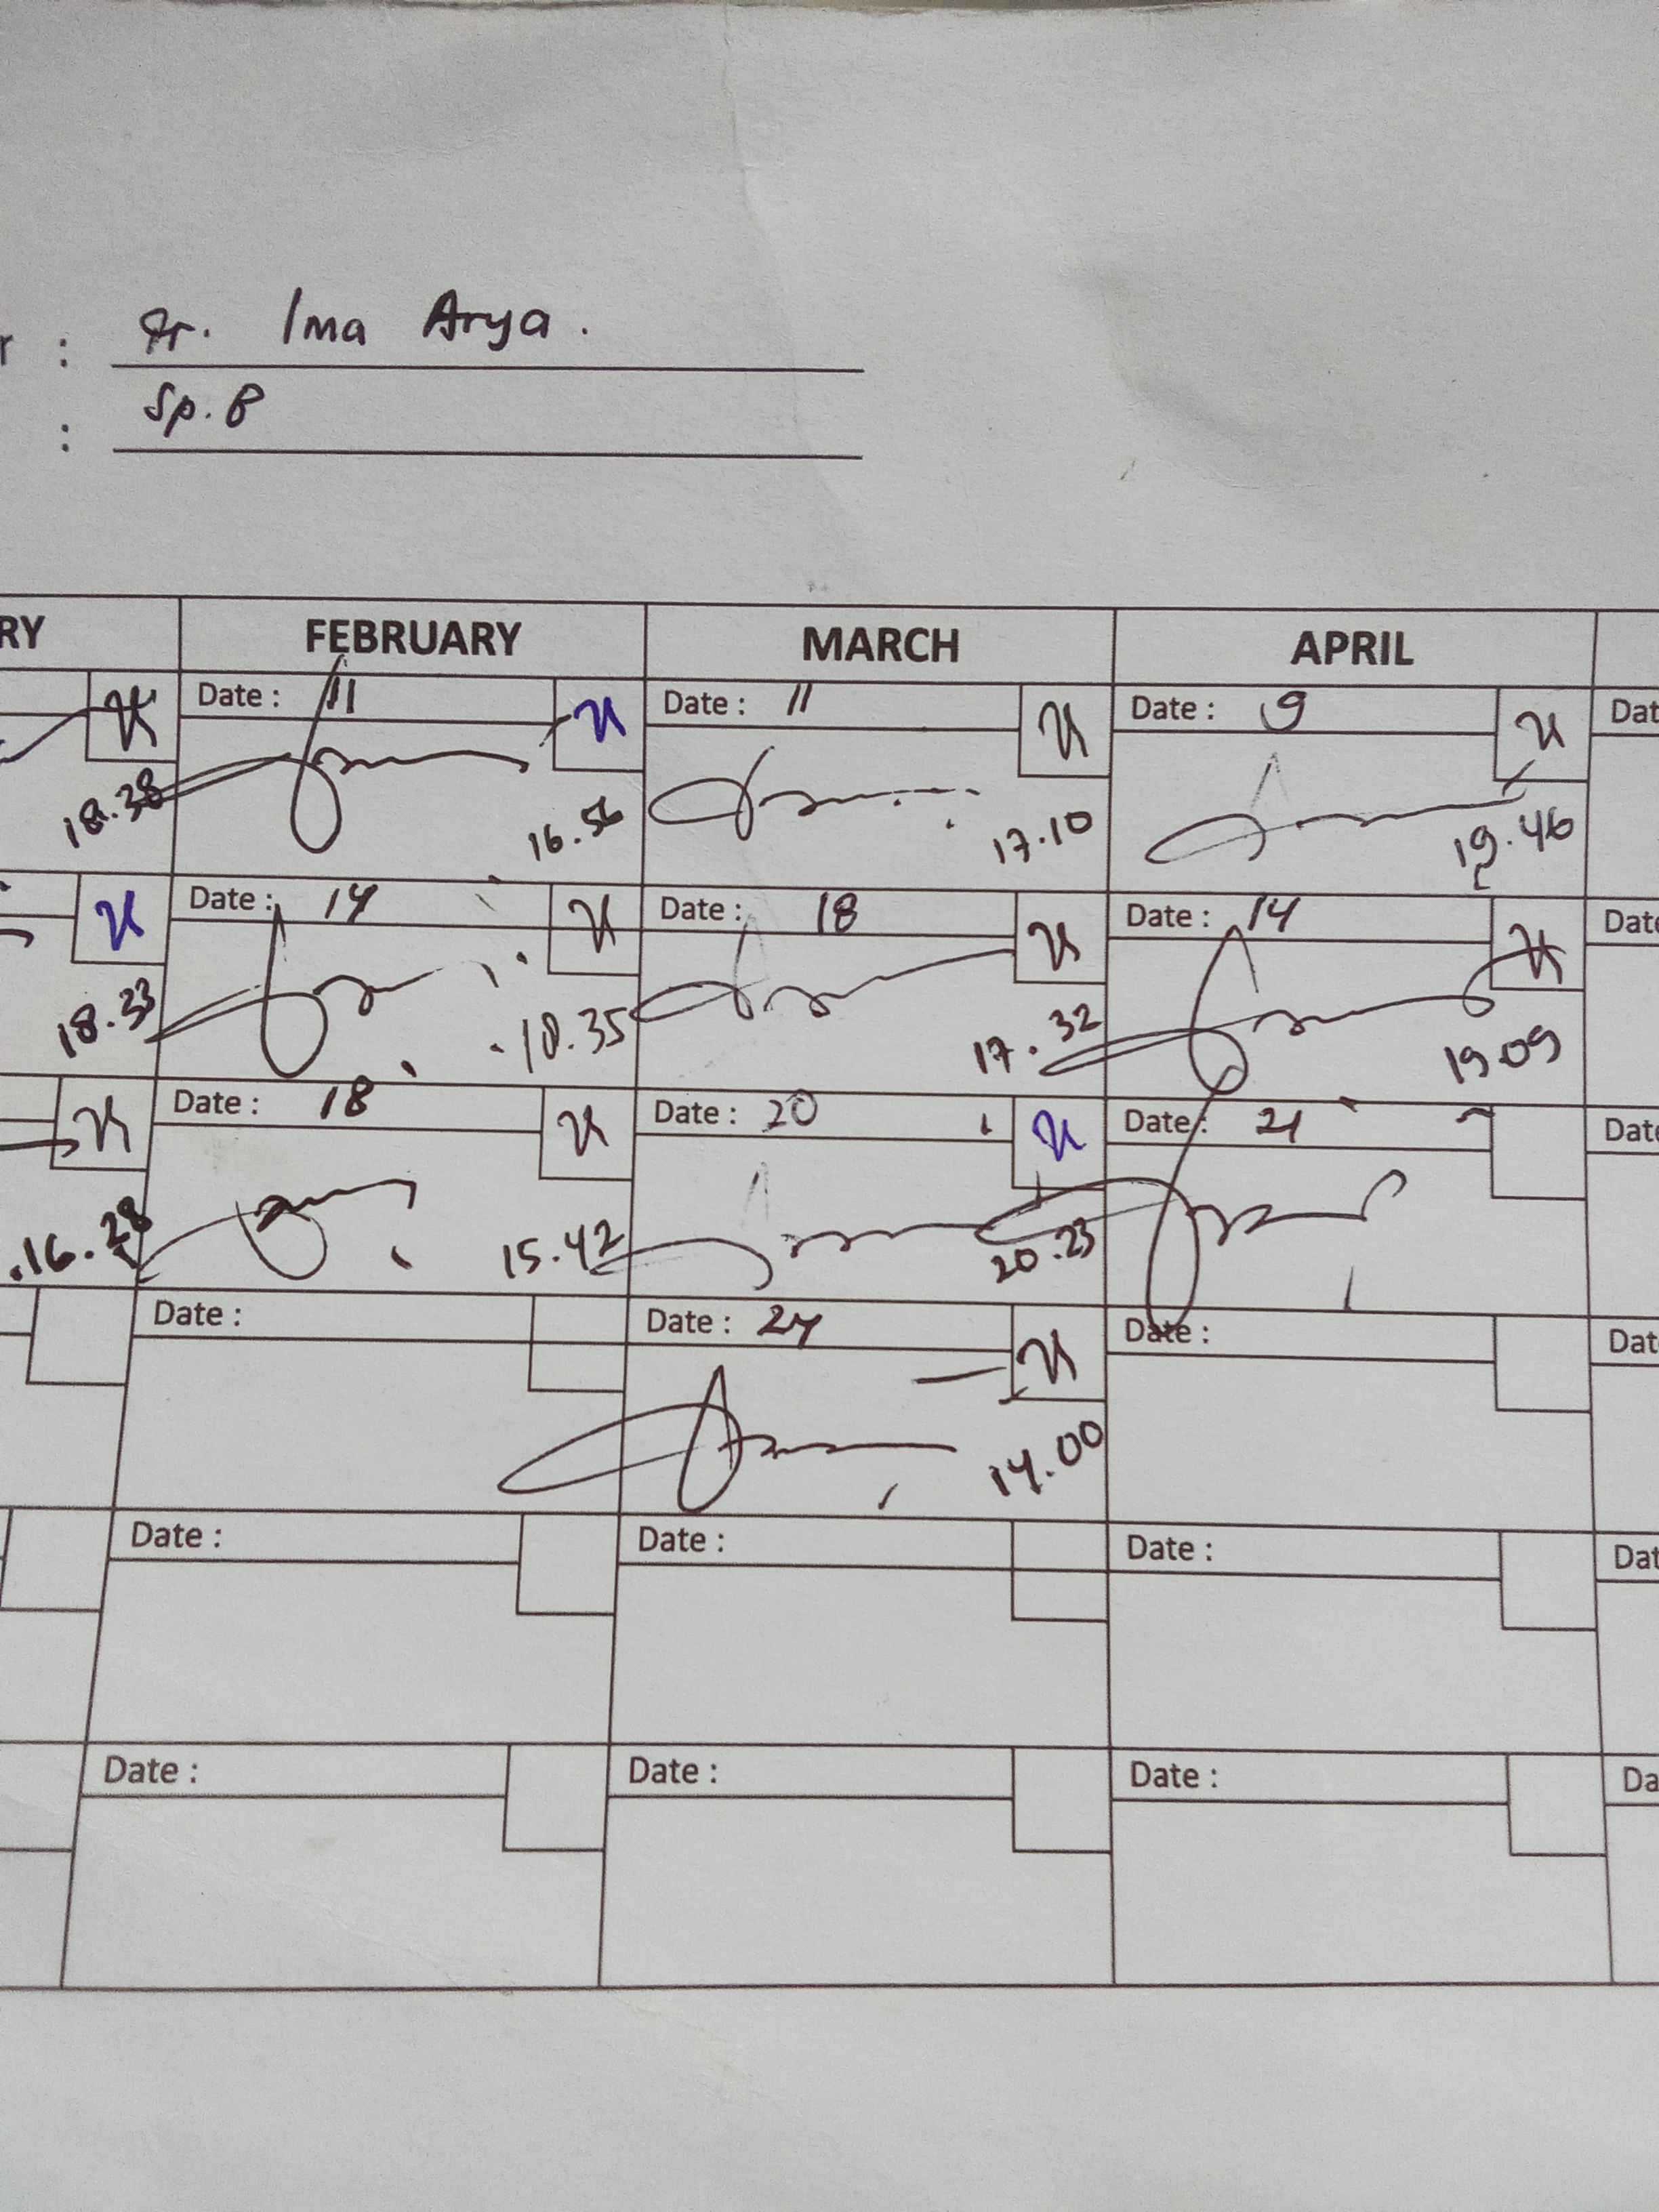 r : dr. Ima Arya.
: Sp.B
RY FEBRUARY MARCH APRIL
Date : 11 Date : 11 Date : 9 Dat
18.38 16.56 17.10 19.46
Date : 14 Date : 18 Date : 14 Date
18.33 18.35 17.32 19.09
Date : 18 Date : 20 Date : 21 Date
16.28 15.42 20.23
Date : Date : 24 Date : Dat
14.00
Date : Date : Date : Dat
Date : Date : Date : Da